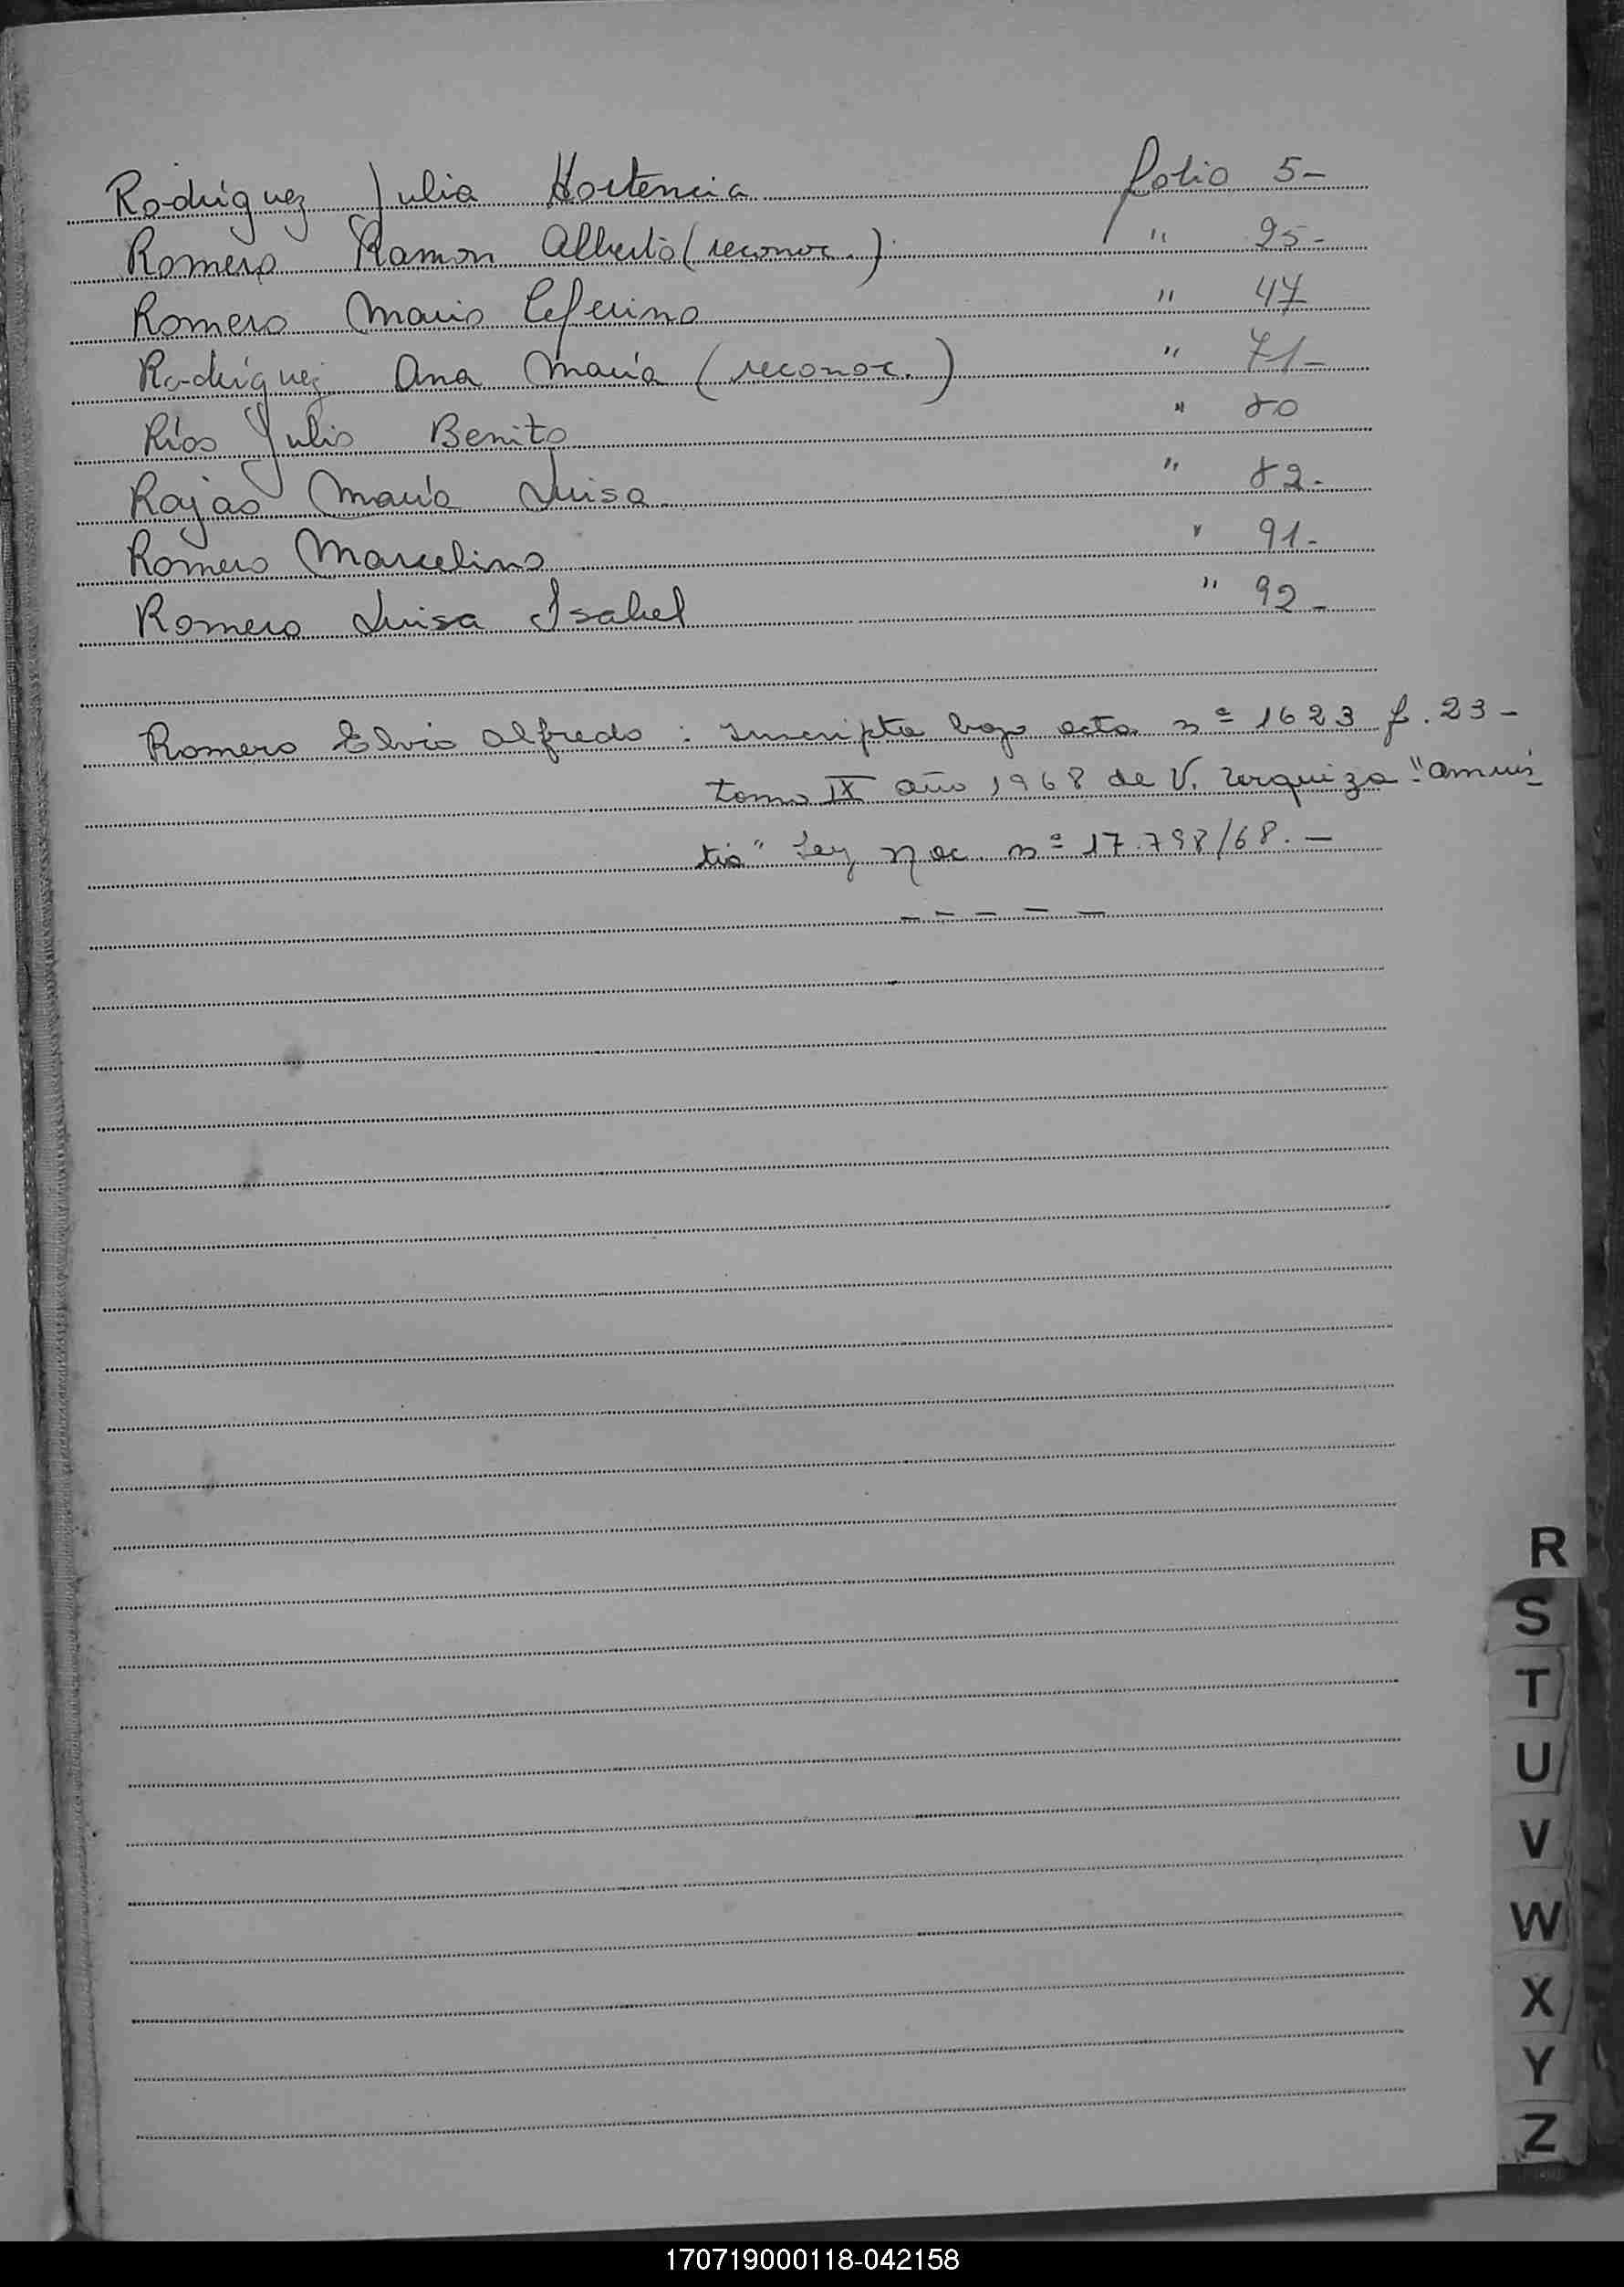 Rodriguez Julia Hortencia folio 5-
Romero Ramon Alberto (reconoc.) " 25-
Romero Mario Ceferino " 47
Rodriguez Ana María (reconoc.) " 71-
Ríos Julio Benito " 80
Rojas María Luisa " 82-
Romero Marcelino " 91-
Romero Luisa Isabel " 92-
Romero Elvio Alfredo : Inscripta bajo acta nº 1623 f. 23-
tomo IX año 1968 de V. Urquiza "amnis
tia" Ley Nac. nº 17.798/68.-
- - - - -
R
S
T
U
V
W
X
Y
Z
170719000118-042158